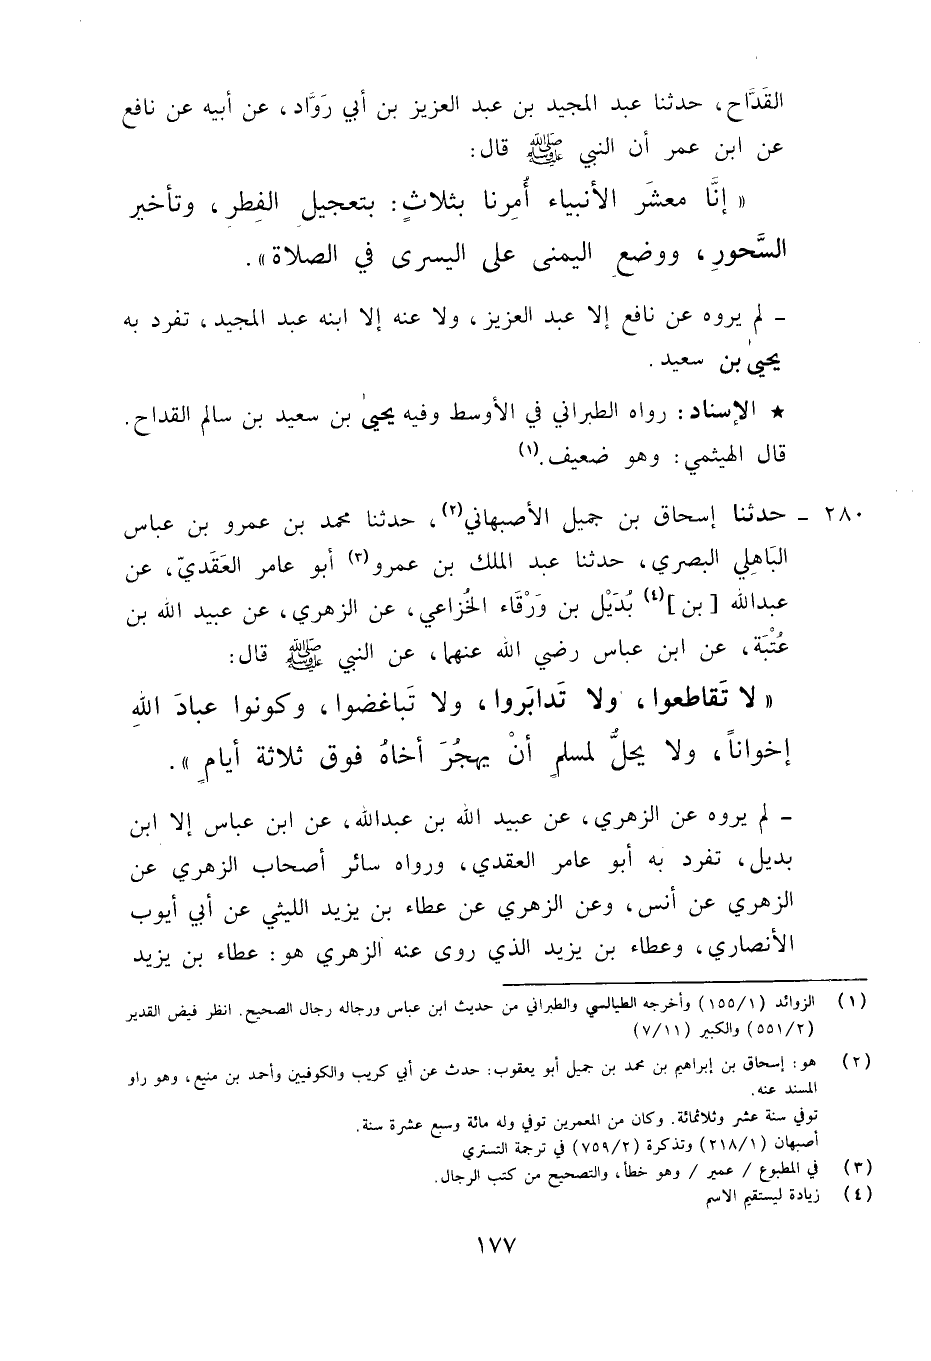 القَدَّاح، حدثنا عبد المجيد بن عبد العزيز بن أبي رَوَّاد، عن أبيه عن نافع
عن ابن عمر أن النبي ﷺ قال:
« إنَّا معشَر الأنبياء أُمِرنا بثلاثٍ: بتعجيل الفِطر، وتأخير
السَّحورِ، ووضعِ اليمنى على اليسرى في الصلاة».
ـ لم يروه عن نافع إلا عبد العزيز، ولا عنه إلا ابنه عبد المجيد، تفرد به
يحيىٰ بن سعيد.
★ الإسناد: رواه الطبراني في الأوسط وفيه يحيىٰ بن سعيد بن سالم القداح.
قال الهيثمي: وهو ضعيف.(١)
٢٨٠ ـ حدثنا إسحاق بن جميل الأصبهاني(٢)، حدثنا محمد بن عمرو بن عباس
البَاهِلي البصري، حدثنا عبد الملك بن عمرو(٣) أبو عامر العَقَديّ، عن
عبدالله [بن](٤) بُدَيْل بن وَرْقَاء الخُزاعي، عن الزهري، عن عبيد الله بن
عُتْبَة، عن ابن عباس رضي الله عنهما، عن النبي ﷺ قال:
« لا تَقاطعوا، ولا تَدابَروا، ولا تَباغضوا، وكونوا عبادَ اللهِ
إخواناً، ولا يحلُّ لمسلمٍ أنْ يهجُرَ أخاهُ فوق ثلاثة أيامٍ ».
ـ لم يروه عن الزهري، عن عبيد الله بن عبدالله، عن ابن عباس إلا ابن
بديل، تفرد به أبو عامر العقدي، ورواه سائر أصحاب الزهري عن
الزهري عن أنس، وعن الزهري عن عطاء بن يزيد الليثي عن أبي أيوب
الأنصاري، وعطاء بن يزيد الذي روى عنه الزهري هو: عطاء بن يزيد
(١) الزوائد (١/١٥٥) وأخرجه الطيالسي والطبراني من حديث ابن عباس ورجاله رجال الصحيح. انظر فيض القدير
(٢/٥٥١) والكبير (٧/١١)
(٢) هو: إسحاق بن إبراهيم بن محمد بن جميل أبو يعقوب: حدث عن أبي كريب والكوفيين وأحمد بن منيع، وهو راو
المسند عنه.
توفي سنة عشر وثلاثمائة. وكان من المعمرين توفي وله مائة وسبع عشرة سنة.
أصبهان (١/٢١٨) وتذكرة (٢/٧٥٩) في ترجمة التستري
(٣) في المطبوع / عمير / وهو خطأ، والتصحيح من كتب الرجال.
(٤) زيادة ليستقيم الاسم
١٧٧